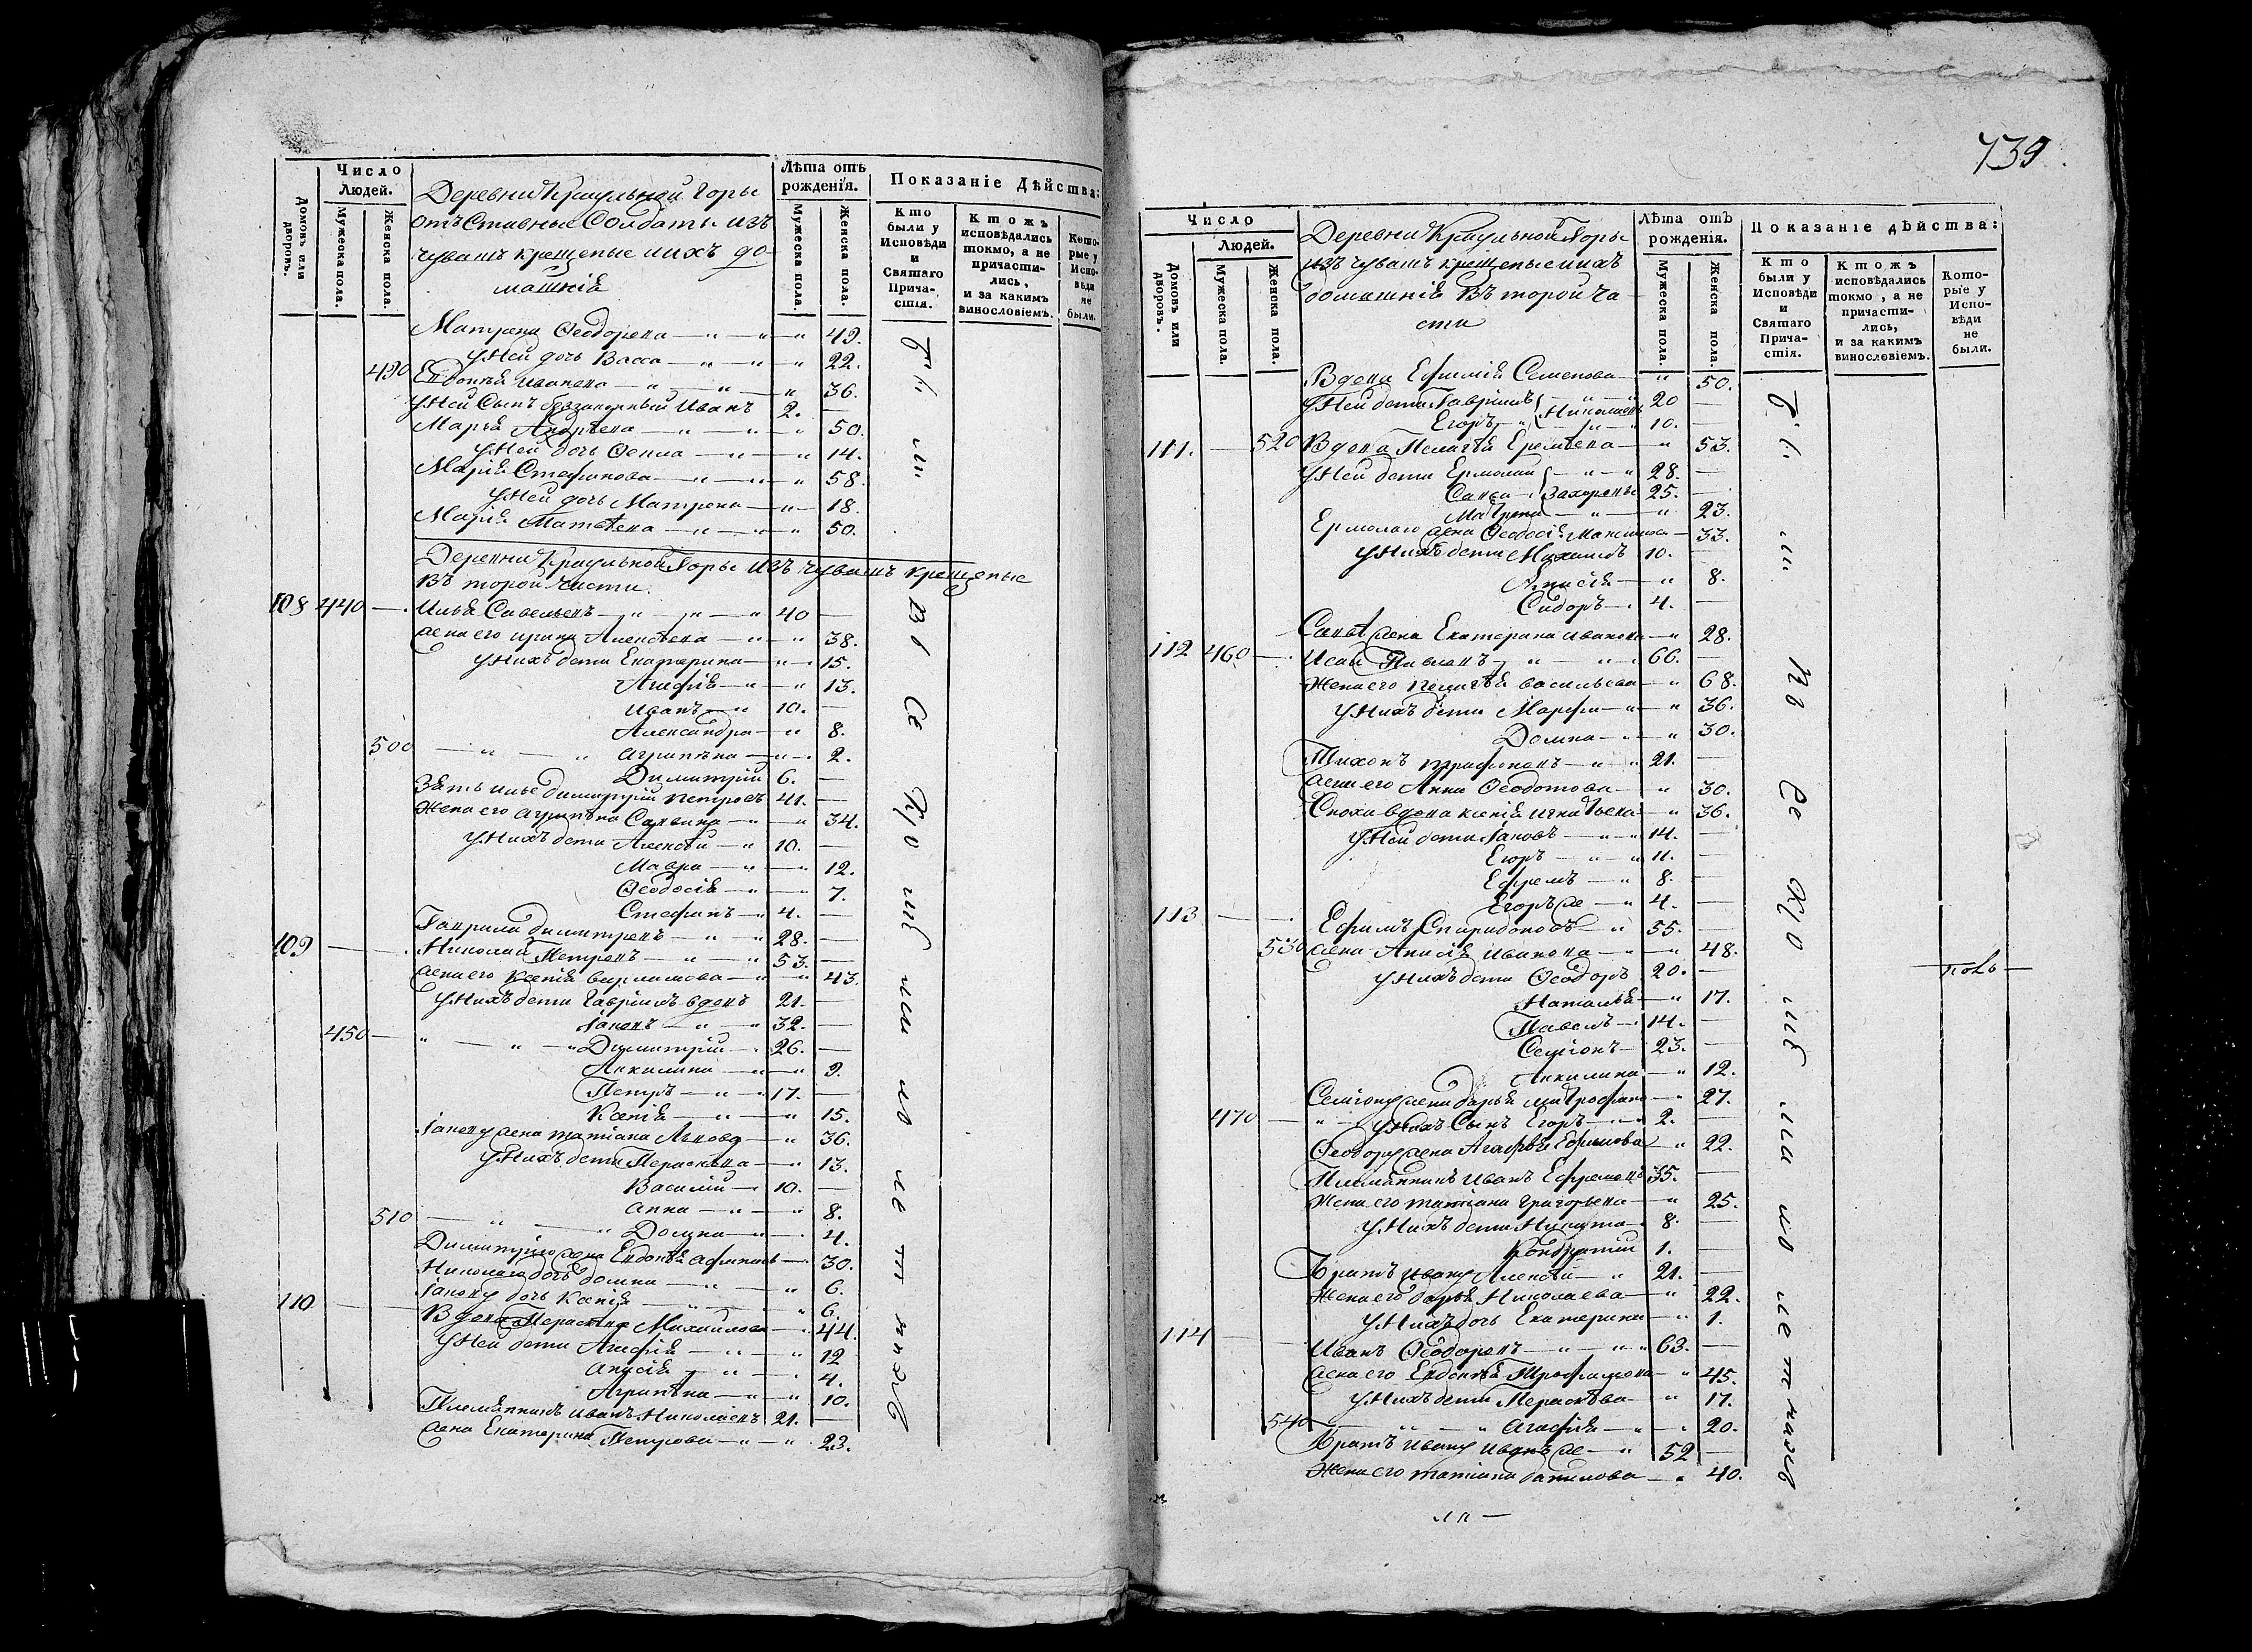 Число
Людей.
Домовъ или дворовъ.
Мужеска пола.
Женска пола.
Деревни Краульной Горы
отъставные Солдаты изъ
чувашъ крещеные и ихъ до-
машнія
Лѣта отъ
рожденія.
Мужеска пола.
Женска пола.
Показаніе Дѣйства:
Кто были у Исповѣди и Святаго Прича-стія.
Ктожъ исповѣдались токмо, а не причасти-лись, и за какимъ винословіемъ.
Кото-рые у Испо-вѣди не были.
Матрена Ѳеодорова — 49.
У Ней дочь Васса — 22.
490 Евдокія Иванова — 36.
У Ней Сынъ беззаконный Иванъ 2. —
Марья Андрѣева — 50.
У Ней дочь Ѳекла — 14.
Марія Стефанова — 58.
У Ней дочь Матрона — 18.
Марія Матвѣева — 50.
Деревни Краульной Горы изъ чувашъ крещеные
Второй части.
108 440 — Илья Савельевъ — 40 —
жена его Ирина Алексѣева — 38.
У Нихъ дети Екатерина — 15.
Агафія — 13.
Иванъ — 10. —
Александра — 8.
500 Агрипѣна — 2.
Димитрій 6. —
Зять Илье Димитрій Петровъ 41. —
Жена его Агрипѣна Савина — 34.
У Нихъ дети Алексѣй — 10. —
Мавра — 12.
Ѳеодосія — 7.
Стефанъ — 4. —
Гаврила Димитревъ — 28. —
109 — Николай Петровъ — 53. —
жена его Ксенія Варламова — 43.
У Нихъ дети Гавріилъ вдовъ 21. —
Іаковъ — 32. —
450 — Димитрій — 26. —
Акилина — 9.
Петръ — 17. —
Ксенія — 15.
Іакову жена Татіана Львова — 36.
У Нихъ дети Параскѣва — 13.
Василій — 10. —
Анна — 8.
510 Домна — 4.
Димитрію жена Евдокѣя — 30.
Николаю дочь Домна — 6.
Іакову дочь Ксенія — 6.
110 — Вдова Параскева Михайлова — 44.
У Ней дети Агафія — 12
Анисія — 4.
Агрипѣна — 10.
Племянникъ Иванъ Николаевъ 21. —
жена Екатерина Петрова — 23.
Бы ли
Всѣ Кромѣ мало летнихъ
739
Число
Людей.
Домовъ или дворовъ.
Мужеска пола.
Женска пола.
Деревни Краульной Горы
изъ чувашъ крещеные и ихъ
домашнія Второй ча-
сти
Лѣта отъ
рожденія.
Мужеска пола.
Женска пола.
Показаніе дѣйства:
Кто были у Исповѣди и Святаго Прича-стія.
Ктожъ исповѣдались токмо, а не причасти-лись, и за какимъ винословіемъ.
Кото-рые у Испо-вѣди не были.
Вдова Ефимія Семенова — 50.
У Ней дети Гавріилъ — 20 —
Егоръ — Николаевы 10. —
111. — 520 Вдова Пелагѣя Еремѣева — 53.
У Ней дети Ермолай — 28. —
Савва — Захаровы 25. —
Мавра — 23.
Ермолаю жена Ѳеодосія Максимова — 33.
У Нихъ дети Михаилъ 10. —
Анисія — 8.
Сидоръ — 4. —
Саввѣ жена Екатерина Иванова — 28.
112 460 — Исай Павловъ — 66. —
Жена его Пелагѣя Васильева — 68.
У Нихъ дети Марфа — 36.
Домна — 30.
Тихонъ Трифоновъ — 21. —
жена его Анна Ѳеодотова — 30.
Сноха вдова Ксенія Игнатьева — 36.
У Ней дети Іаковъ — 14. —
Егоръ — 11. —
Ефремъ — 8. —
Егоръ же — 4. —
113 — Ефимъ Спиридоновъ — 55. —
530 жена Анисія Иванова — 48.
У Нихъ дети Ѳеодоръ 20. —
Наталья — 17.
Павелъ — 14. —
Семіонъ — 23. —
Акилина — 12.
Семіону жена Дарья Митрофано — 27.
470 — У Нихъ Сынъ Егоръ — 2. —
Ѳеодору жена Агафѣя Ефимова — 22.
Племянникъ Иванъ Ефремовъ 35. —
Жена его Татіана Григорьева — 25.
У Нихъ дети Никита — 8. —
Кондратій 1. —
Братъ Ивану Алексѣй — 21. —
Жена его Дарья Николаева — 22.
У Нихъ дочь Екатерина — 1.
114 — Иванъ Ѳеодоровъ — 63. —
жена его Евдокѣя Трофимова — 45.
У Нихъ дети Параскѣва — 17.
540 Агафія — 20.
Братъ Ивану Иванъ же — 52 —
Жена его Татіана Данилова — 40.
Бы ли
Всѣ Кромѣ мало летнихъ